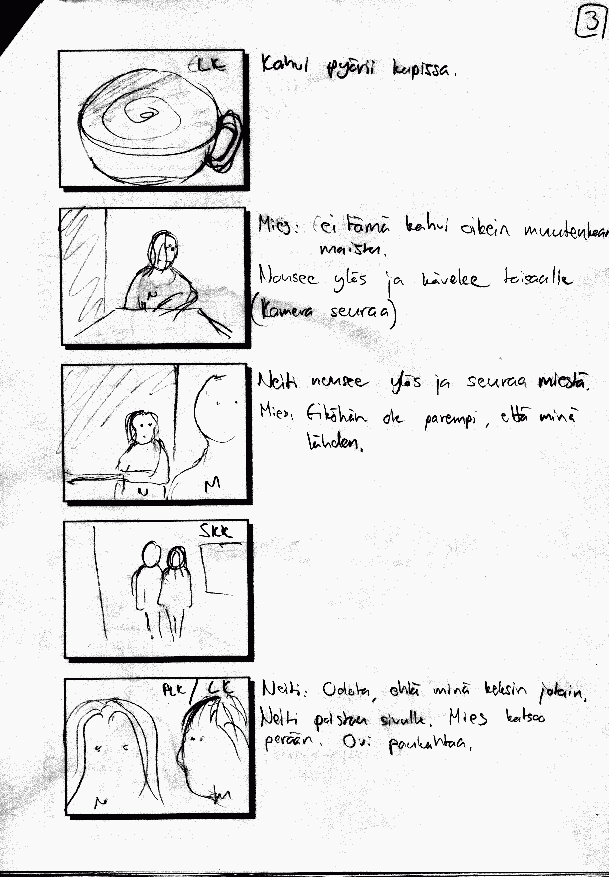 3
ELK
Kahvi pyörii kupissa.
Mies: Ei tämä kahvi oikein muutenkaan
maistu.
Nousee ylös ja kävelee toisaalle
(Kamera seuraa)
N
Neiti nousee ylös ja seuraa miestä.
Mies: Eiköhän ole parempi, että minä
lähden.
N
M
SKK
PLK / LK
Neiti: Odota, ehkä minä keksin jotain.
Neiti poistuu sivulle. Mies katsoo
perään. Ovi paukahtaa.
N
M